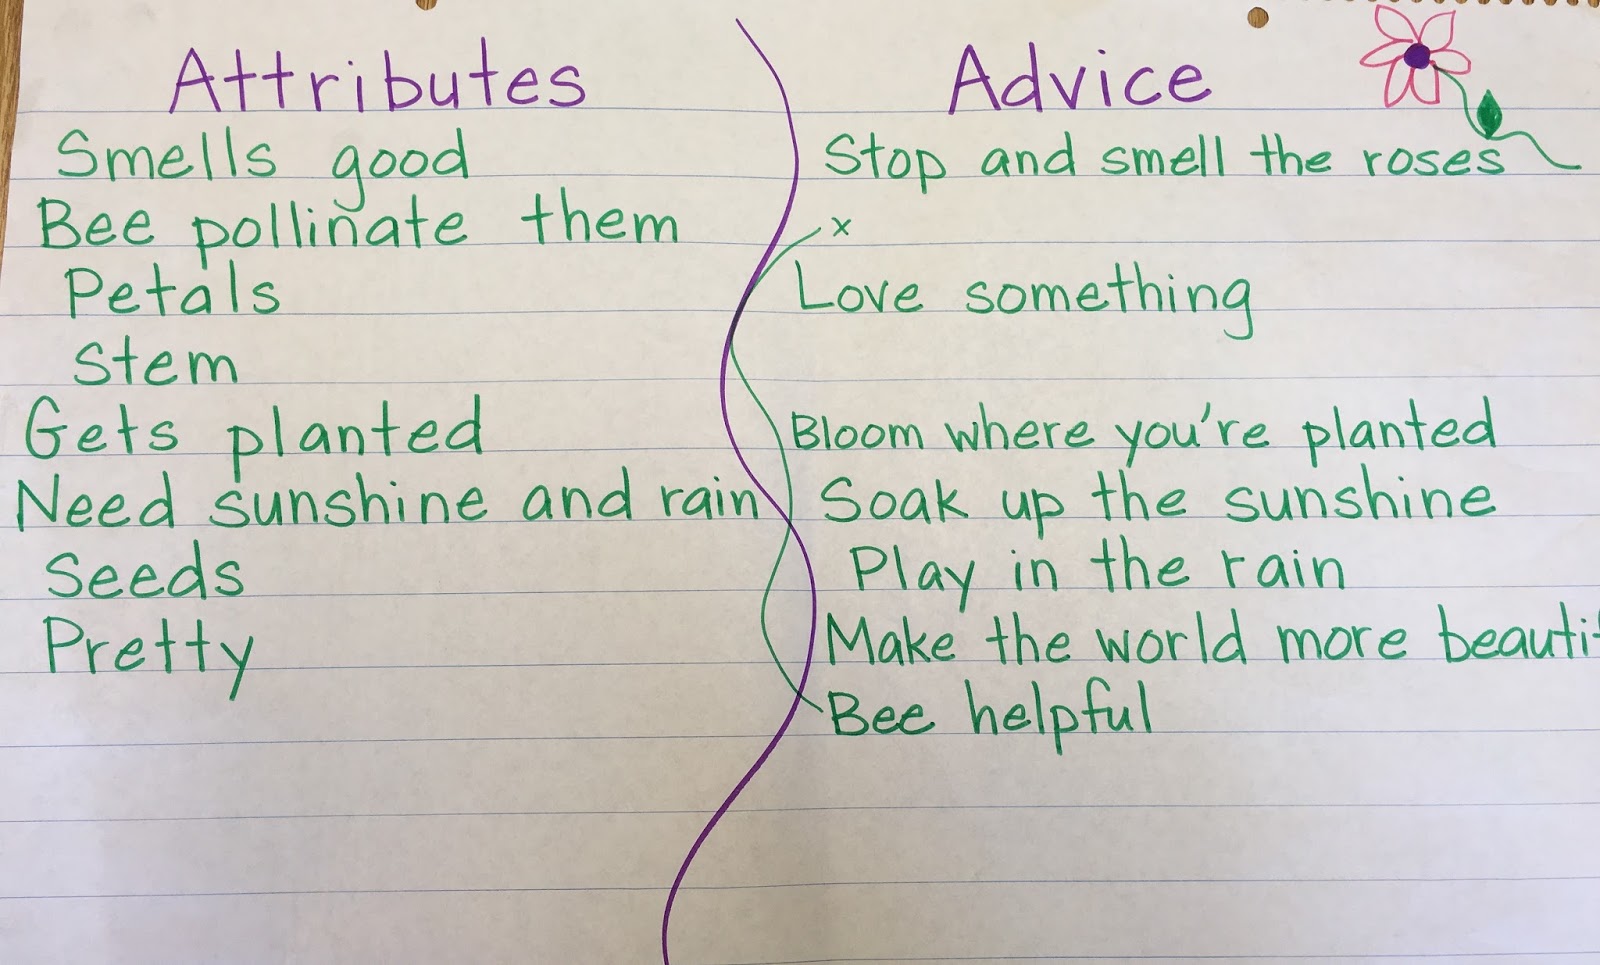 Attributes
Smells good
Bee pollinate them
Petals
Stem
Gets planted
Need sunshine and rain
Seeds
Pretty
Advice
Stop and smell the roses
x
Love something
Bloom where you're planted
Soak up the sunshine
Play in the rain
Make the world more beauti
Bee helpful